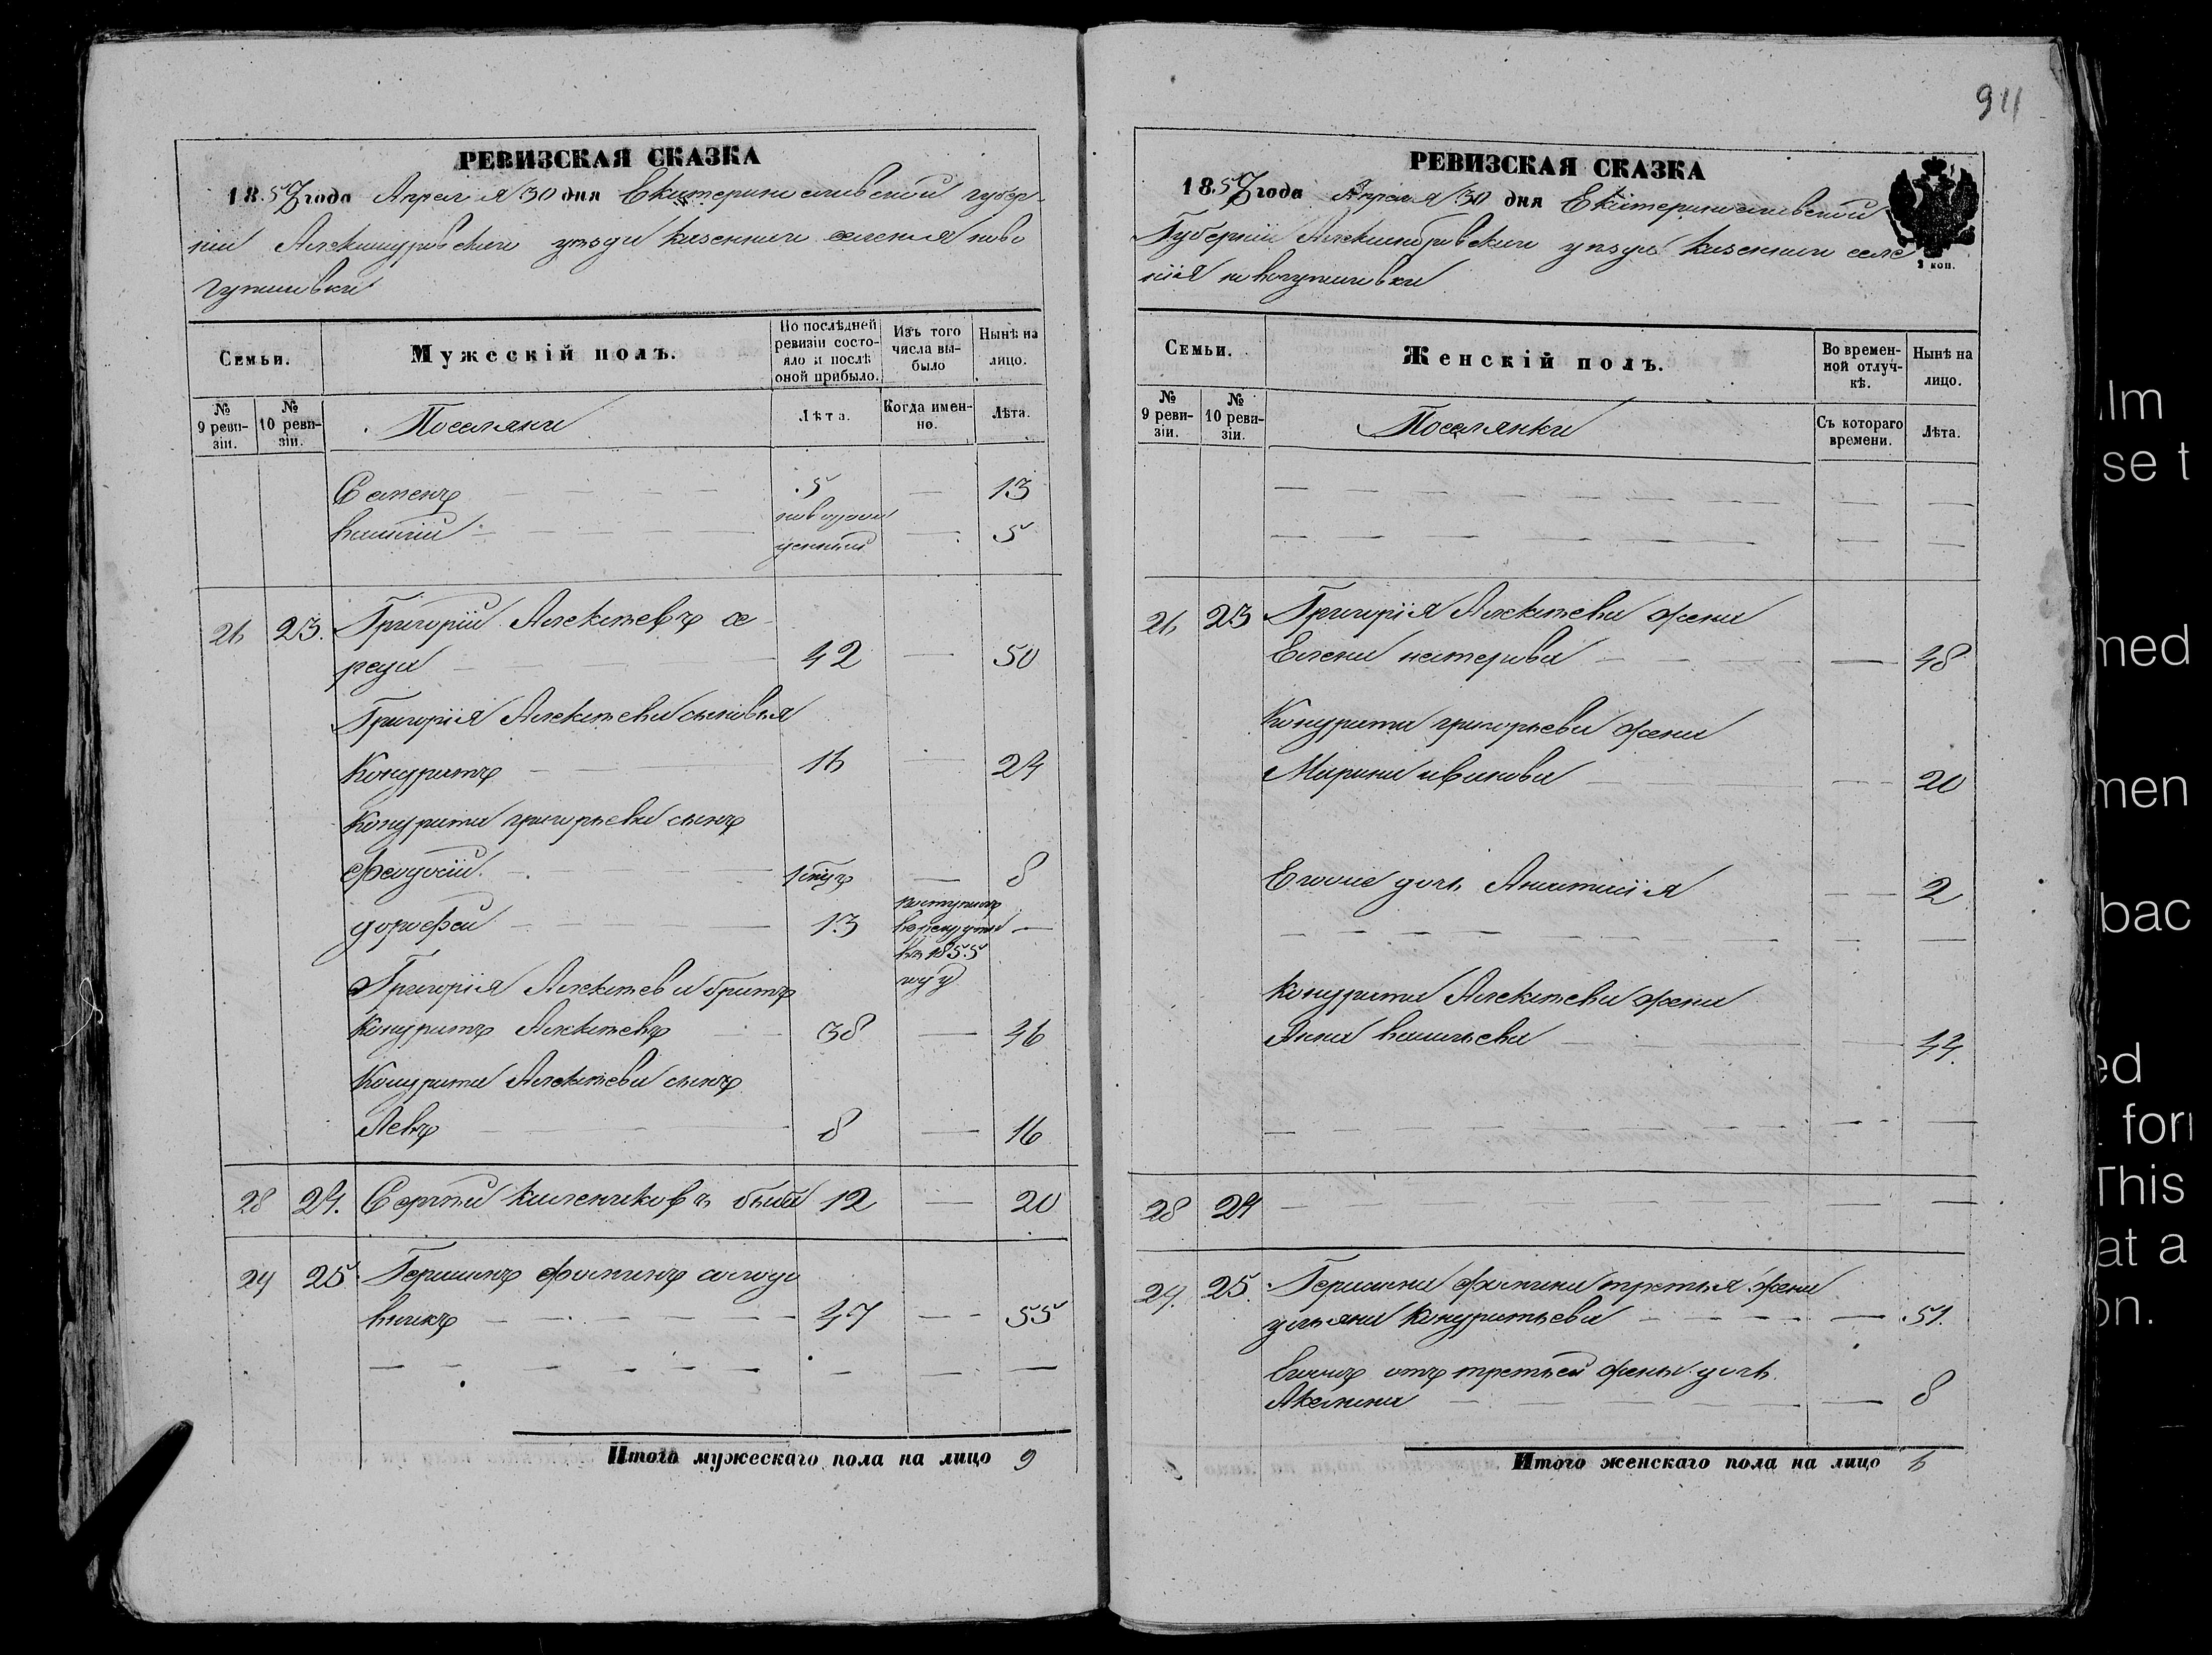 94
РЕВИЗСКАЯ СКАЗКА
1857 года Апреля 30 дня Екатеринославской губер-
нии Александровскаго уезда казеннаго селения ново
гупаловки
Семьи.
Мужескій полъ.
По послѣдней ревизіи состояло и послѣ оной прибыло.
Изъ того числа выбыло
Нынѣ на лицо.
№ 9 ревизіи.
№ 10 ревизіи.
Поселяне
Лѣта.
Когда именно.
Лѣта.
Семенъ 5 — 13
василий новорож
денный — 5
26 23. Григорий Алексеевъ се
реда 42 — 50
Григория Алексеева сыновья
Кондратъ 16 — 24
Кондрата григорьева сынъ
Феодосий 1 годъ — 8
дорофей 13 поступилъ
в рекруты —
въ 1855
году
Григория Алексеева братъ
Кондратъ Алексеевъ 38 — 46
Кондрата Алексеева сынъ
Левъ 8 — 16
28 24. Сергей 12 — 20
29 25. Германъ Фоминъ солодо
вникъ 47 — 55
Итого мужескаго пола на лицо 9
РЕВИЗСКАЯ СКАЗКА
1857 года Апреля 30 дня Екатеринославской
Губернии Александровскаго уезда казеннаго селе
ния новогупаловки
2 коп.
Семьи.
Женскій полъ.
Во временной отлучкѣ.
Нынѣ на лицо.
№ 9 ревизіи.
№ 10 ревизіи.
Поселянки
Съ котораго времени.
Лѣта.
26 23 Григория Алексеева жена
Елена нестерова — 48
Кондрата григорьева жена
Марина иванова — 20
Еговне дочь Анастасия — 2
кондрата Алексеева жена
Анна васильева — 44
28 24
29. 25. Германа Фомина третья жена
ульяна кондратьева — 51.
Еговна отъ третьей жены дочь
Акелина — 8
Итого женскаго пола на лицо 6
lm
se t
med
men
bac
ed
for
This
at a
on.